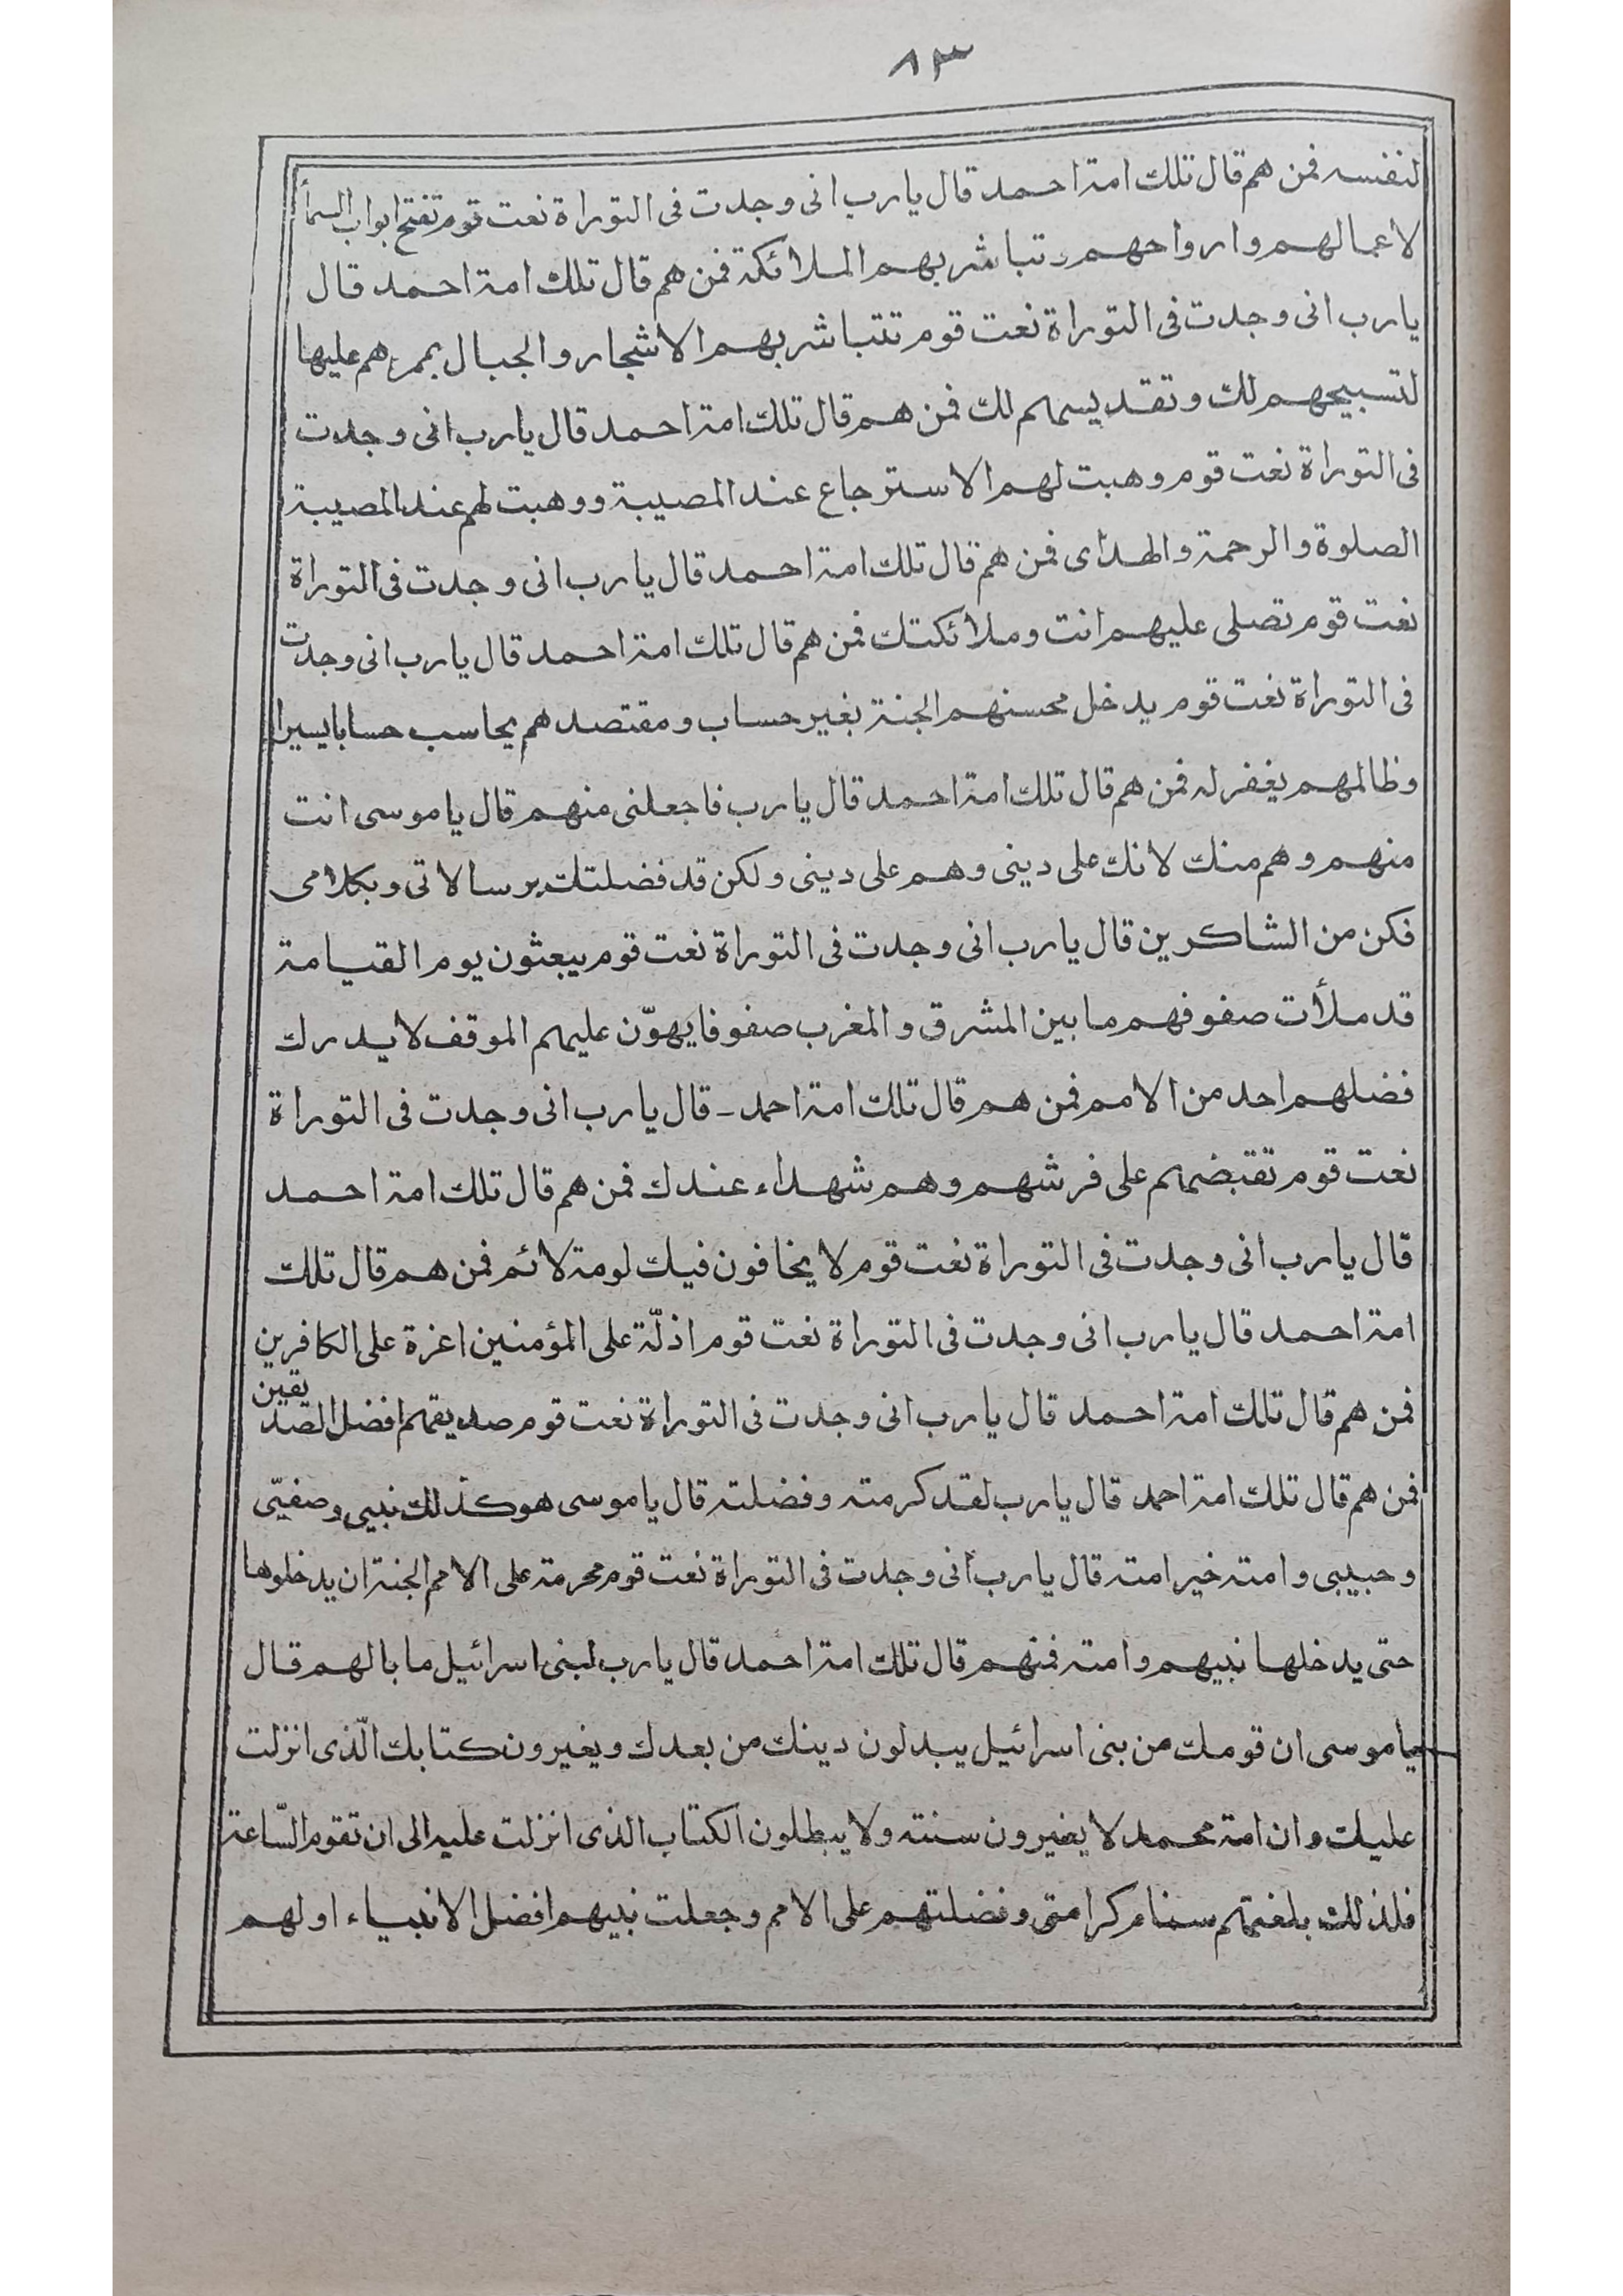 ٨٣
لنفسه فمن هم قال تلك امة احمد قال يا رب انى وجدت فى التوراة نعت قوم تفتح ابواب السمأ
لاعمالهم وارواحهم وتباشر بهم الملائكة فمن هم قال تلك امة احمد قال
يا رب انى وجدت فى التوراة نعت قوم تتباشر بهم الاشجار والجبال بممرهم عليها
لتسبيحهم لك وتقديسهم لك فمن هم قال تلك امة احمد قال يا رب انى وجدت
فى التوراة نعت قوم وهبت لهم الاسترجاع عند المصيبة ووهبت لهم عند المصيبة
الصلوة والرحمة والهداى فمن هم قال تلك امة احمد قال يا رب انى وجدت فى التوراة
نعت قوم تصلى عليهم انت وملائكتك فمن هم قال تلك امة احمد قال يا رب انى وجدت
فى التوراة نعت قوم يدخل محسنهم الجنة بغير حساب ومقتصدهم يحاسب حسابا يسيرا
وظالمهم يغفر له فمن هم قال تلك امة احمد قال يا رب فاجعلنى منهم قال يا موسى انت
منهم وهم منك لانك على دينى وهم على دينى ولكن قد فضلتك برسالاتى وبكلامى
فكن من الشاكرين قال يا رب انى وجدت فى التوراة نعت قوم يبعثون يوم القيامة
قد ملأت صفوفهم ما بين المشرق والمغرب صفوفا يهوّن عليهم الموقف لا يدرك
فضلهم احد من الامم فمن هم قال تلك امة احمد ـ قال يا رب انى وجدت فى التوراة
نعت قوم تقتبضهم على فرشهم وهم شهداء عندك فمن هم قال تلك امة احمد
قال يا رب انى وجدت فى التوراة نعت قوم لا يخافون فيك لومة لائم فمن هم قال تلك
امة احمد قال يا رب انى وجدت فى التوراة نعت قوم اذلّة على المؤمنين اعزة على الكافرين
فمن هم قال تلك امة احمد قال يا رب انى وجدت فى التوراة نعت قوم صديقهم افضل الصديقين
فمن هم قال تلك امة احمد قال يا رب لقد كرمته وفضلته قال يا موسى هو كذلك نبيى وصفيّى
وحبيبى وامته خير امة قال يا رب انى وجدت فى التوراة نعت قوم محرمة على الامم الجنة ان يدخلوها
حتى يدخلها نبيهم وامته فمنهم قال تلك امة احمد قال يا رب لبنى اسرائيل ما بالهم قال
يا موسى ان قومك من بنى اسرائيل يبدلون دينك من بعدك ويغيرون كتابك الّذى انزلت
عليك وان امة محمد لا يغيرون سنته ولا يبطلون الكتاب الذى انزلت عليه الى ان تقوم السّاعة
فلذلك بلغتهم سنام كرامتى وفضلتهم على الامم وجعلت نبيهم افضل الانبياء اولهم